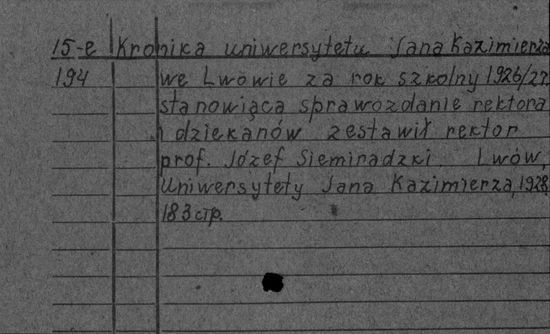 15-e Kronika uniwersytetu Jana Kazimierza
194 we Lwowie za rok szkolny 1926/27
stanowiąca sprawozdanie rektora
i dziekanów zestawił rektor
prof. Józef Siemiradzki. Lwów,
Uniwersytety Jana Kazimierza, 1928,
183 стр.